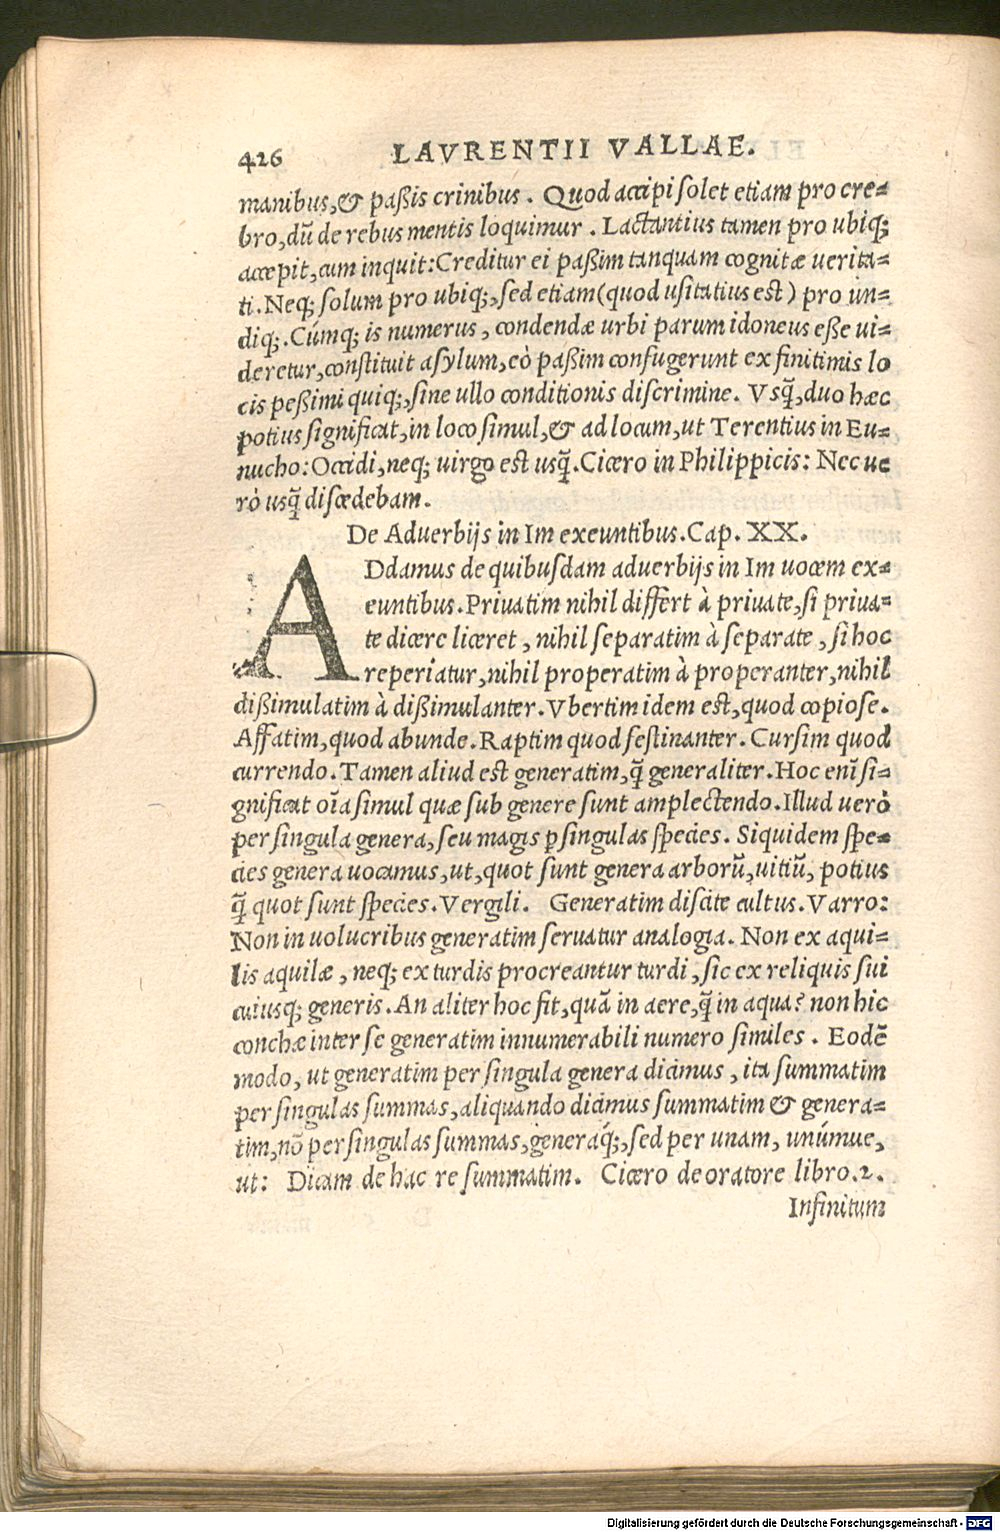 426 LAVRENTII VALLAE.
manibus,& paßis crinibus. Quod accipi solet etiam pro cre=
bro,dũ de rebus mentis loquimur. Lactantius tamen pro ubiq;
accepit,cum inquit:Creditur ei paßim tanquam cognitæ uerita=
ti.Neq; solum pro ubiq;,sed etiam(quod usitatius est) pro un=
diq;.Cúmq; is numerus, condendæ urbi parum idoneus eße ui=
deretur,constituit asylum,eò paßim confugerunt ex finitimis lo
cis peßimi quiq;,sine ullo conditionis discrimine. Vsq̃,duo hæc
potius significat,in loco simul,& ad locum,ut Terentius in Eu=
nucho:Occidi,neq; uirgo est usq̃.Cicero in Philippicis: Nec ue
rò usq̃ discedebam.
De Aduerbijs in Im exeuntibus.Cap. XX.
ADdamus de quibusdam aduerbijs in Im uocem ex=
euntibus.Priuatim nihil differt à priuate,si priua=
te dicere liceret, nihil separatim à separate, si hoc
reperiatur,nihil properatim à properanter,nihil
dißimulatim à dißimulanter.Vbertim idem est,quod copiose.
Affatim,quod abunde.Raptim quod festinanter. Cursim quod
currendo.Tamen aliud est generatim,q̃ generaliter.Hoc enĩ si=
gnificat oĩa simul quæ sub genere sunt amplectendo.Illud uerò
per singula genera,seu magis p singulas species. Siquidem spe=
cies genera uocamus,ut,quot sunt genera arborũ,uitiũ, potius
q̃ quot sunt species.Vergili. Generatim discite cultus.Varro:
Non in uolucribus generatim seruatur analogia. Non ex aqui=
lis aquilæ, neq; ex turdis procreantur turdi, sic ex reliquis sui
cuiusq; generis.An aliter hoc fit,quã in aere,q̃ in aqua? non hic
conchæ inter se generatim innumerabili numero similes. Eodẽ
modo, ut generatim per singula genera dicimus, ita summatim
per singulas summas,aliquando dicimus summatim & genera=
tim,nõ per singulas summas,generaq́;,sed per unam, unúmue,
ut: Dicam de hac re summatim. Cicero de oratore libro.2.
Infinitum
Digitalisierung gefördert durch die Deutsche Forschungsgemeinschaft - DFG